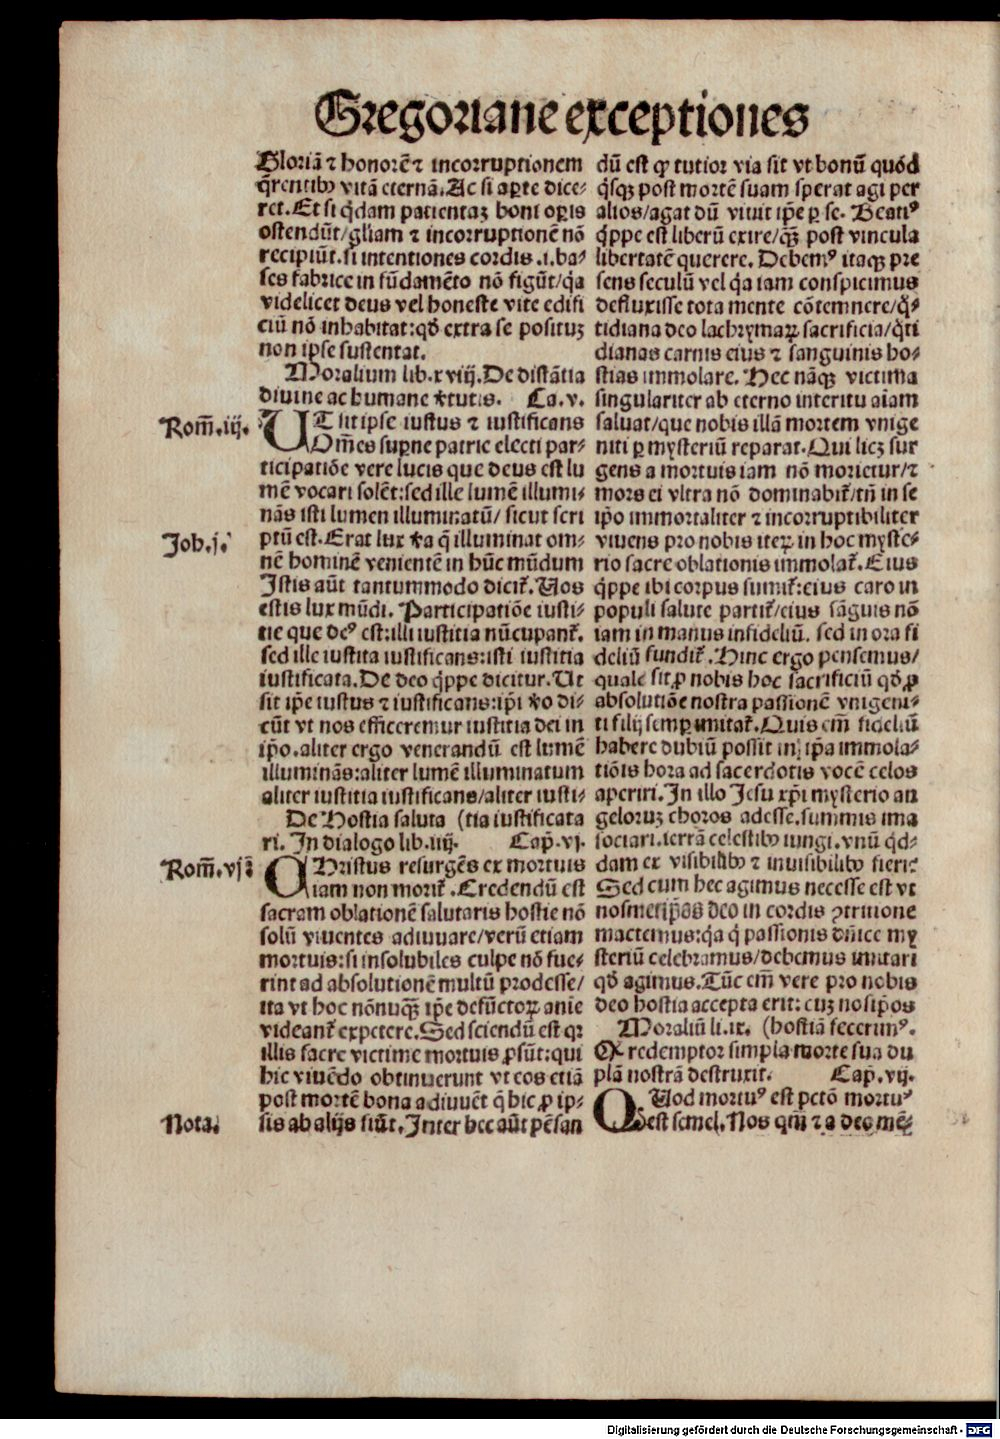 Gregoriane exceptiones
Gloriā ⁊ honorē ⁊ incorruptionem
q̄rentibꝰ vitā eternā. Ac si aꝑte dice⸗
ret. Et si q̄dam patientaꝫ boni oꝑis
ostendūt/gl̄iam ⁊ incorruptionē nō
recipiūt. si intentiones cordis .i. ba⸗
ses fabrice in fūdamēto nō figūt/q̄a
videlicet deus vel honeste vite edifi
ciū nō inhabitat: qđ extra se posituꝫ
non ipse sustentat.
Moralium lib. xviij. De distātia
diuine ac humane v̓tutis. Ca. v.
Rom̄. iij.
UT sit ipse iustus ⁊ iustificans
Om̄es suꝑne patrie electi par⸗
ticipatiōe vere lucis que deus est lu
mē vocari solēt: sed ille lumē illumi⸗
nās isti lumen illuminatū/ sicut scri
Joh. j.
ptū est. Erat lux v̓a q̄ illuminat om⸗
nē hominē venientē in hūc mūdum
Istis aūt tantummodo dicit̄. Uos
estis lux mūdi. Participatiōe iusti⸗
tie que deꝰ est: illi iustitia nūcupant̄.
sed ille iustita iustificans: isti iustitia
iustificata. De deo q̄ppe dicitur. Ut
sit ip̄e iustus ⁊ iustificans: ip̄i v̓o di⸗
cūt vt nos efficeremur iustitia dei in
ip̄o. aliter ergo venerandū est lumē
illuminās: aliter lumē illuminatum
aliter iustitia iustificans/aliter iusti⸗
De Hostia saluta (tia iustificata
ri. In dialogo lib. iiij. Cap̄. vj.
Rom̄. vj
CHristus resurgēs ex mortuis
iam non morit̄. Credendū est
sacram oblationē salutaris hostie nō
solū viuentes adiuuare/verū etiam
mortuis: si insolubiles culpe nō fue⸗
rint ad absolutionē multū prodesse/
ita vt hoc nōnuqꝫ̄ ip̄e defūctoꝝ anie
videant̄ expetere. Sed sciendū est qꝛ
illis sacre victime mortuis ꝓsūt: qui
hic viuēdo obtinuerunt vt eos etiā
post mortē bona adiuuēt q̄ hic ꝓ ip⸗
Nota.
sis ab alijs fiūt. Inter hec aūt pēsan
dū est ꝙ tutior via sit vt bonū quod
q̄sqꝫ post mortē suam sperat agi per
alios/agat dū viuit ip̄e ꝑ se. Beatiꝰ
q̄ppe est liberū exire/qꝫ̄ post vincula
libertatē querere. Debemꝰ itaqꝫ pre
sens seculū vel q̄a iam conspicimus
defluxisse tota mente cōtemnere/q̄⸗
tidiana deo lachrymaꝝ sacrificia/q̄ti
dianas carnis eius ⁊ sanguinis ho⸗
stias immolare. Hec nāqꝫ victima
singulariter ab eterno interitu aīam
saluat/que nobis illā mortem vnige
niti ꝑ mysteriū reparat. Qui licꝫ sur
gens a mortuis iam nō morietur/⁊
mors ei vltra nō dominabit̄/tn̄ in se
ip̄o immortaliter ⁊ incorruptibiliter
viuens pro nobis iteꝝ in hoc myste⸗
rio sacre oblationis immolat̄. Eius
q̄ppe ibi corpus sumit̄: eius caro in
populi salute partit̄/eius sāguis nō
iam in manus infideliū. sed in ora fi
deliū fundit̄. Hinc ergo pensemus/
quale sit ꝓ nobis hoc sacrificiū qđ ꝓ
absolutiōe nostra passionē vnigeni⸗
ti filij semꝑ imitat̄. Quis em̄ fideliū
habere dubiū possit in ip̄a immola⸗
tiōis hora ad sacerdotis vocē celos
aperiri. In illo Jesu xp̄i mysterio an
geloruꝫ choros adesse. summis ima
sociari. terrā celestibꝰ iungi. vnū q̄d⸗
dam ex visibilibꝰ ⁊ inuisibilibꝰ fieri:
Sed cum hec agimus necesse est vt
nosmetip̄os deo in cordis ꝯtritione
mactemus: q̄a q̄ passionis dn̄ice my
steriū celebramus/debemus imitari
qđ agimus. Tūc em̄ vere pro nobis
deo hostia accepta erit: cuꝫ nosip̄os
Moraliū li. ix. (hostiā fecerimꝰ.
Ꝙ redemptor simpla morte sua du
plā nostrā destruxit. Cap̄. vij.
QUod mortuꝰ est pctō mortuꝰ
est semel. Nos qm̄ ⁊ a deo mē⸗
Digitalisierung gefördert durch die Deutsche Forschungsgemeinschaft - DFG